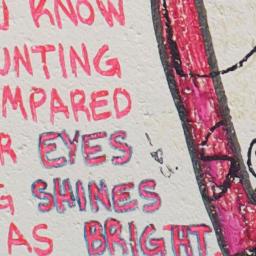 U KNOW
UNTING
MPARED
R EYES
G SHINES
AS BRIGHT.